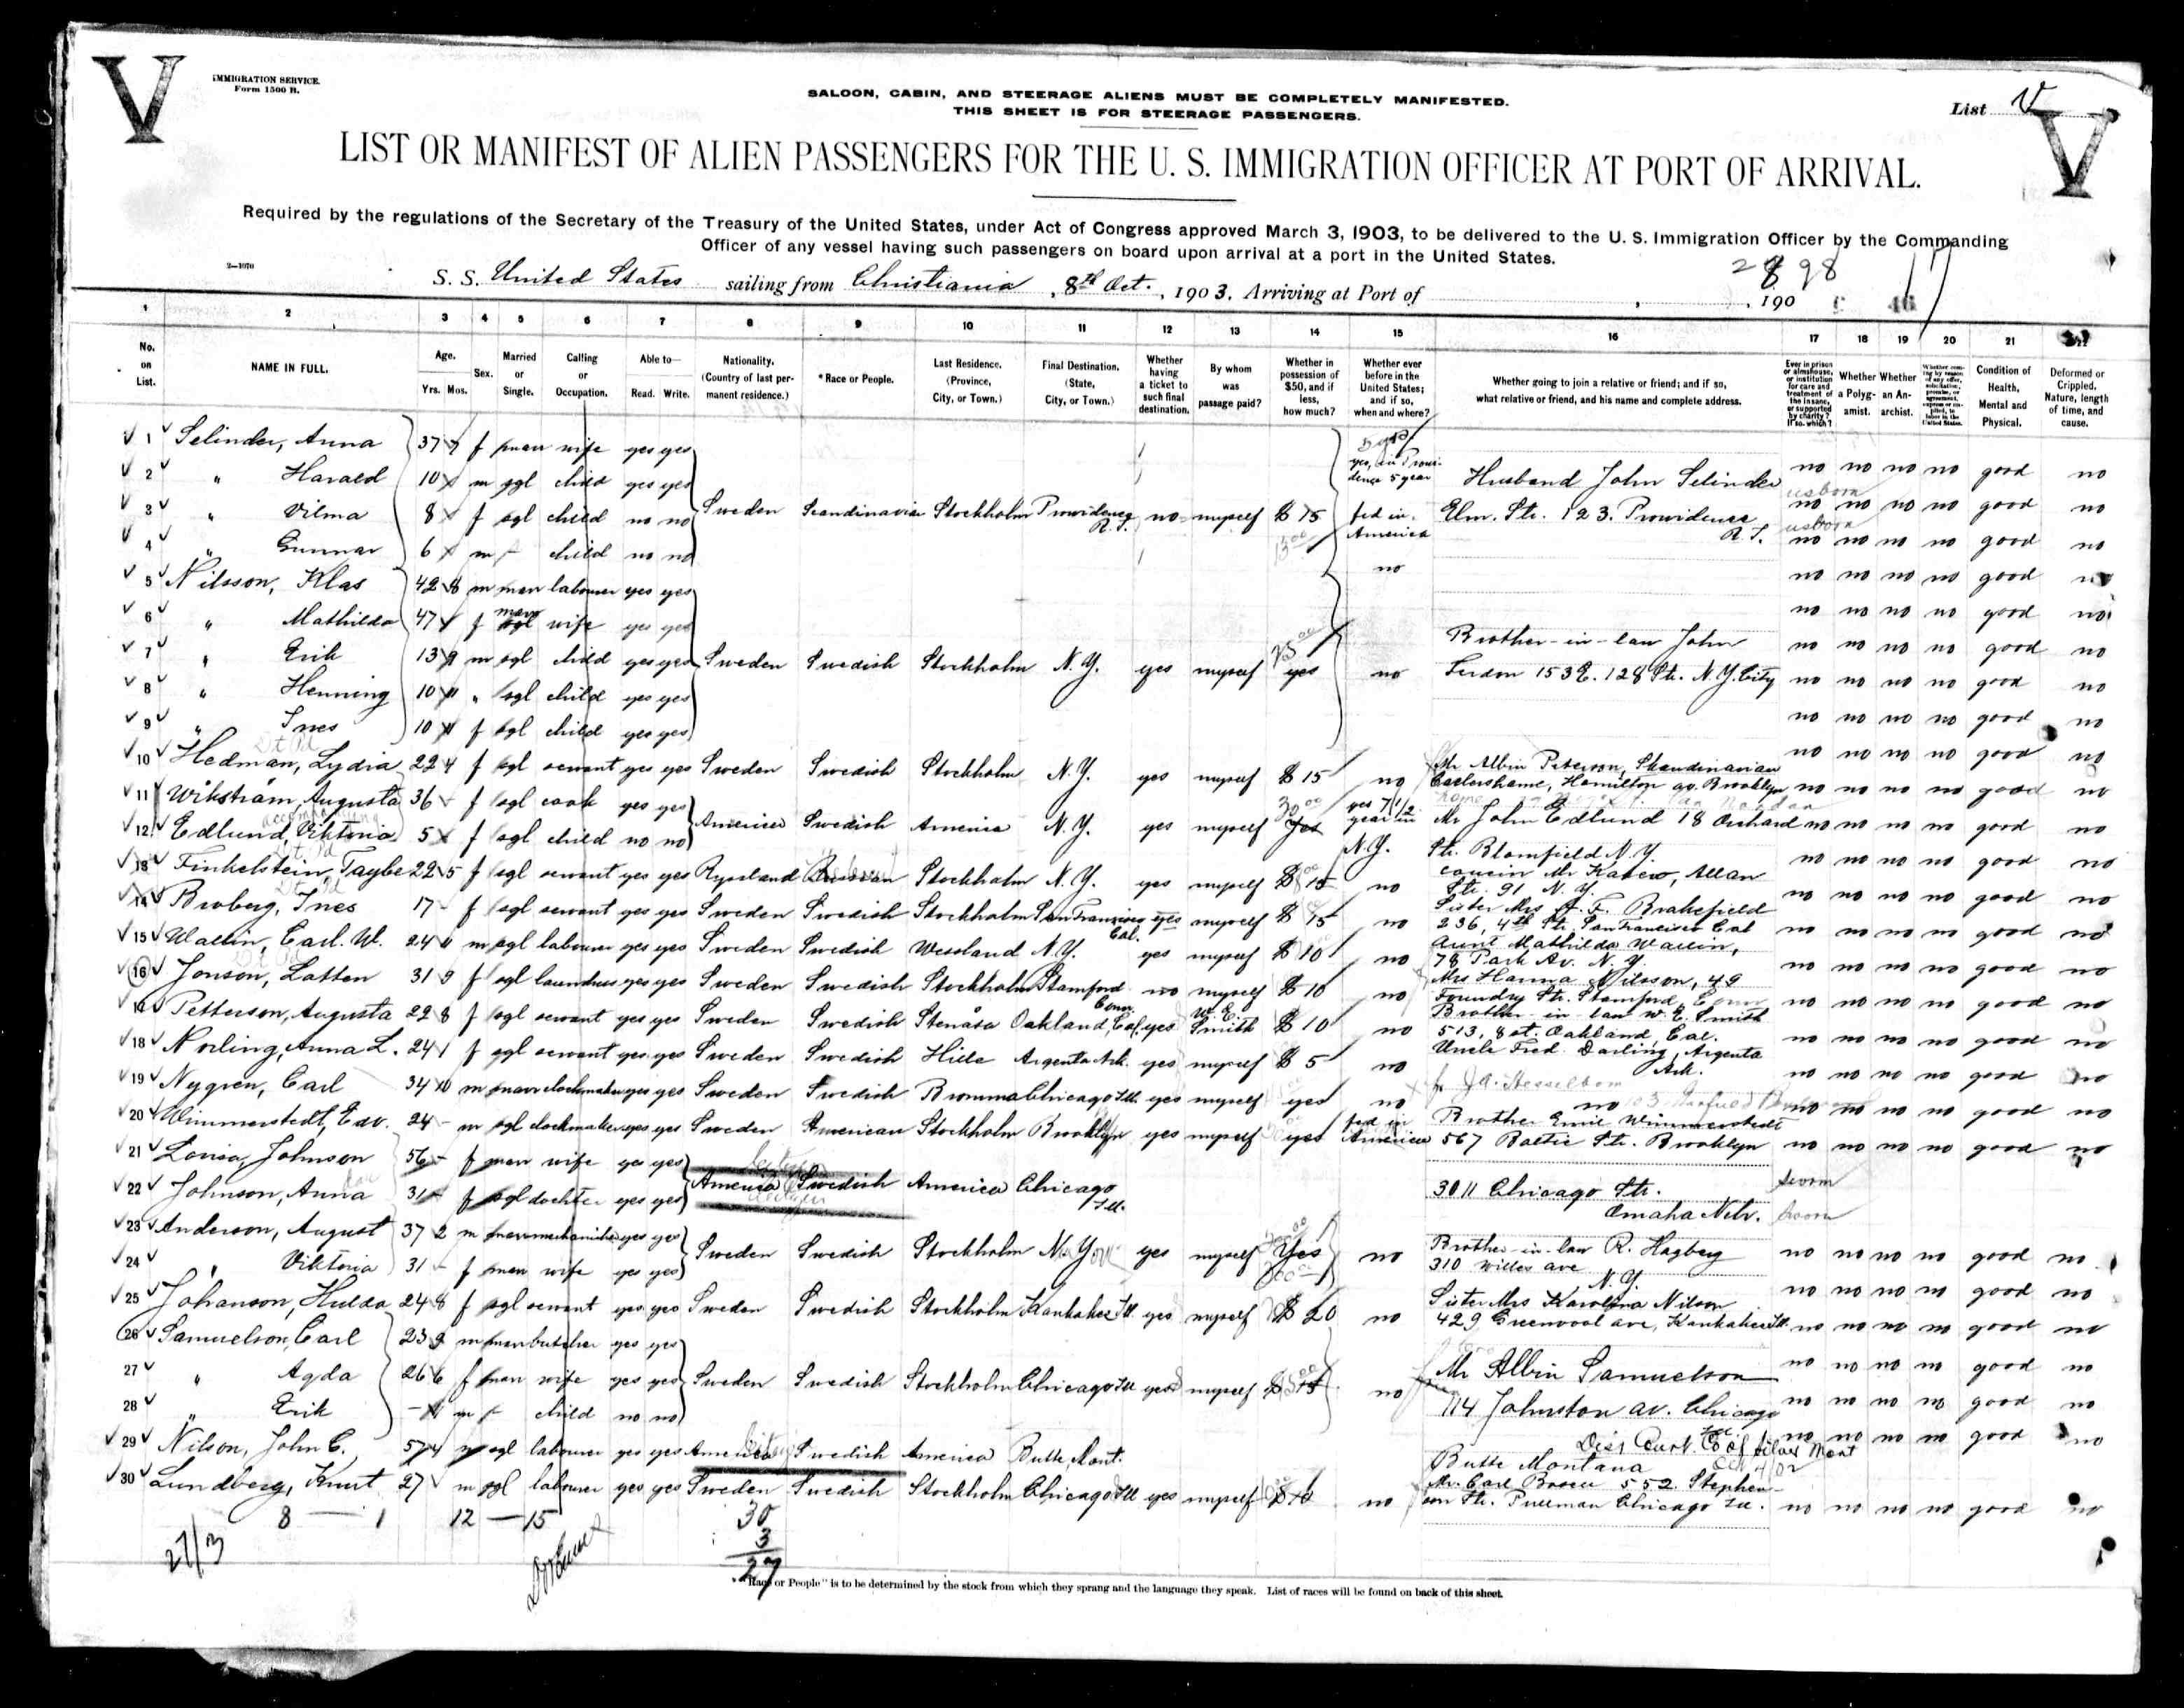 V
IMMIGRATION SERVICE.
Form 1500 B.
SALOON, CABIN, AND STEERAGE ALIENS MUST BE COMPLETELY MANIFESTED.
THIS SHEET IS FOR STEERAGE PASSENGERS.
List V
V
LIST OR MANIFEST OF ALIEN PASSENGERS FOR THE U. S. IMMIGRATION OFFICER AT PORT OF ARRIVAL.
Required by the regulations of the Secretary of the Treasury of the United States, under Act of Congress approved March 3, 1903, to be delivered to the U. S. Immigration Officer by the Commanding
Officer of any vessel having such passengers on board upon arrival at a port in the United States.
2—1070
S. S. United States sailing from Christiania, 8th Oct., 1903. Arriving at Port of , 190
1 2 3 4 5 6 7 8 9 10 11 12 13 14 15 16 17 18 19 20 21
No. on List. NAME IN FULL. Age. Yrs. Mos. Sex. Married or Single. Calling or Occupation. Able to— Read. Write. Nationality. (Country of last permanent residence.) *Race or People. Last Residence. (Province, City, or Town.) Final Destination. (State, City, or Town.) Whether having a ticket to such final destination. By whom was passage paid? Whether in possession of $50, and if less, how much? Whether ever before in the United States; and if so, when and where? Whether going to join a relative or friend; and if so, what relative or friend, and his name and complete address. Ever in prison or almshouse, or institution for care and treatment of the insane, or supported by charity? If so, which? Whether a Polygamist. Whether an Anarchist. Condition of Health, Mental and Physical. Deformed or Crippled. Nature, length of time, and cause.
1 Selinder, Anna 37 f marr wife yes yes
2 " Harald 10 m sgl child yes yes Husband John Selinder no no no no good no
3 " Vilma 8 f sgl child no no Sweden Scandinavian Stockholm Providence R.I. no myself $ 15 Elm. Str. 123. Providence R.I. no no no no good no
4 " Gunnar 6 m child no no America no no no no good no
5 Nilsson, Klas 42 8 m marr labourer yes yes no no no no no good no
6 " Mathilda 47 f marr wife yes yes no no no no good no
7 " Erik 13 9 m sgl child yes yes Sweden Swedish Stockholm N.Y. yes myself yes no Brother-in-law John no no no no good no
8 " Henning 10 11 " sgl child yes yes 153 E. 128 Str. N.Y. City no no no no good no
9 " Ines 10 11 f sgl child yes yes no no no no good no
10 Hedman, Lydia 22 4 f sgl servant yes yes Sweden Swedish Stockholm N.Y. yes myself $ 15 no Mr Albin Peterson, Skandinavian no no no no good no
Hamilton av. Brooklyn
11 Wikström, Augusta 36 f sgl cook yes yes no no no no good no
12 Edlund, Viktoria 5 f sgl child no no America Swedish America N.Y. yes myself Yes yes 7 1/2 year in N.Y. Mr John Edlund 18 Orchard no no no no good no
Str. Blomfield N.Y.
13 Finkelstein, Taybe 22 5 f sgl servant yes yes Russian Stockholm N.Y. yes myself $ 15 no cousin Mr Allan no no no no good no
Str. 91 N.Y.
14 Broberg, Ines 17 f sgl servant yes yes Sweden Swedish Stockholm San Francisco Cal. yes myself $ 15 no Sister Mrs Brakefield no no no no good no
236, 4th Str. San Francisco Cal
15 Wallin, Carl. W. 24 11 m sgl labourer yes yes Sweden Swedish N.Y. yes myself $ 10 no Aunt Mathilda Wallin, no no no no good no
78 Park Av. N.Y.
16 Jonson, Lotten 31 9 f sgl laundress yes yes Sweden Swedish Stockholm Stamford Conn. no myself $ 10 no Mrs Hanna Nilsson, 49 no no no no good no
Foundry Str. Stamford, Conn
17 Petterson, Augusta 22 8 f sgl servant yes yes Sweden Swedish Stenåsa Oakland, Cal. yes W. E. Smith $ 10 no Brother in law W. E. Smith no no no no good no
513, 8 st. Oakland, Cal.
18 Norling, Anna L. 24 1 f sgl servant yes yes Sweden Swedish Hille Argenta Ark. yes myself $ 5 no Uncle Fred. Darling, Argenta Ark. no no no no good no
19 Nygren, Carl 34 10 m marr clockmaker yes yes Sweden Swedish Bromma Chicago Ill. yes myself yes no no no no no no good no
20 Wimmerstedt, Edv. 24 m sgl clockmaker yes yes Sweden American Stockholm Brooklyn yes myself yes America Brother Emil Wimmerstedt
567 Baltic Str. Brooklyn no no no no good no
21 Lovisa, Johnson 56 f marr wife yes yes
22 Johnson, Anna 31 f sgl dochter yes yes America Swedish America Chicago Ill. 3011 Chicago Str.
Omaha Neb.
23 Anderson, August 37 2 m marr mechaniker yes yes
24 " Viktoria 31 f marr wife yes yes Sweden Swedish Stockholm N. York yes myself Yes no Brother-in-law R. Hagberg no no no no good no
310 Willis ave N.Y.
25 Johanson, Hulda 24 8 f sgl servant yes yes Sweden Swedish Stockholm Kankakee Ill yes myself $ 20 no Sister Mrs Karolina Nilson no no no no good no
429 Greenwood ave, Kankakee Ill.
26 Samuelson, Carl 23 9 m marr butcher yes yes no no no no good no
27 " Agda 26 6 f marr wife yes yes Sweden Swedish Stockholm Chicago Ill yes myself $ 15 no Mr Albin Samuelson no no no no good no
28 " Erik m child no no 114 Johnston av. Chicago no no no no good no
29 Nilson, John C. 57 4 m sgl labourer yes yes America Swedish America Butte, Mont. Butte Montana no no no no good no
30 Lundberg, Knut 27 m sgl labourer yes yes Sweden Swedish Stockholm Chicago Ill yes myself $ 10 no Mr. Carl 552. Stephenson Str. Pullman Chicago Ill. no no no no good no
8 — 1 12 — 15 30
3
27
27/3
"Race or People" is to be determined by the stock from which they sprang and the language they speak. List of races will be found on back of this sheet.